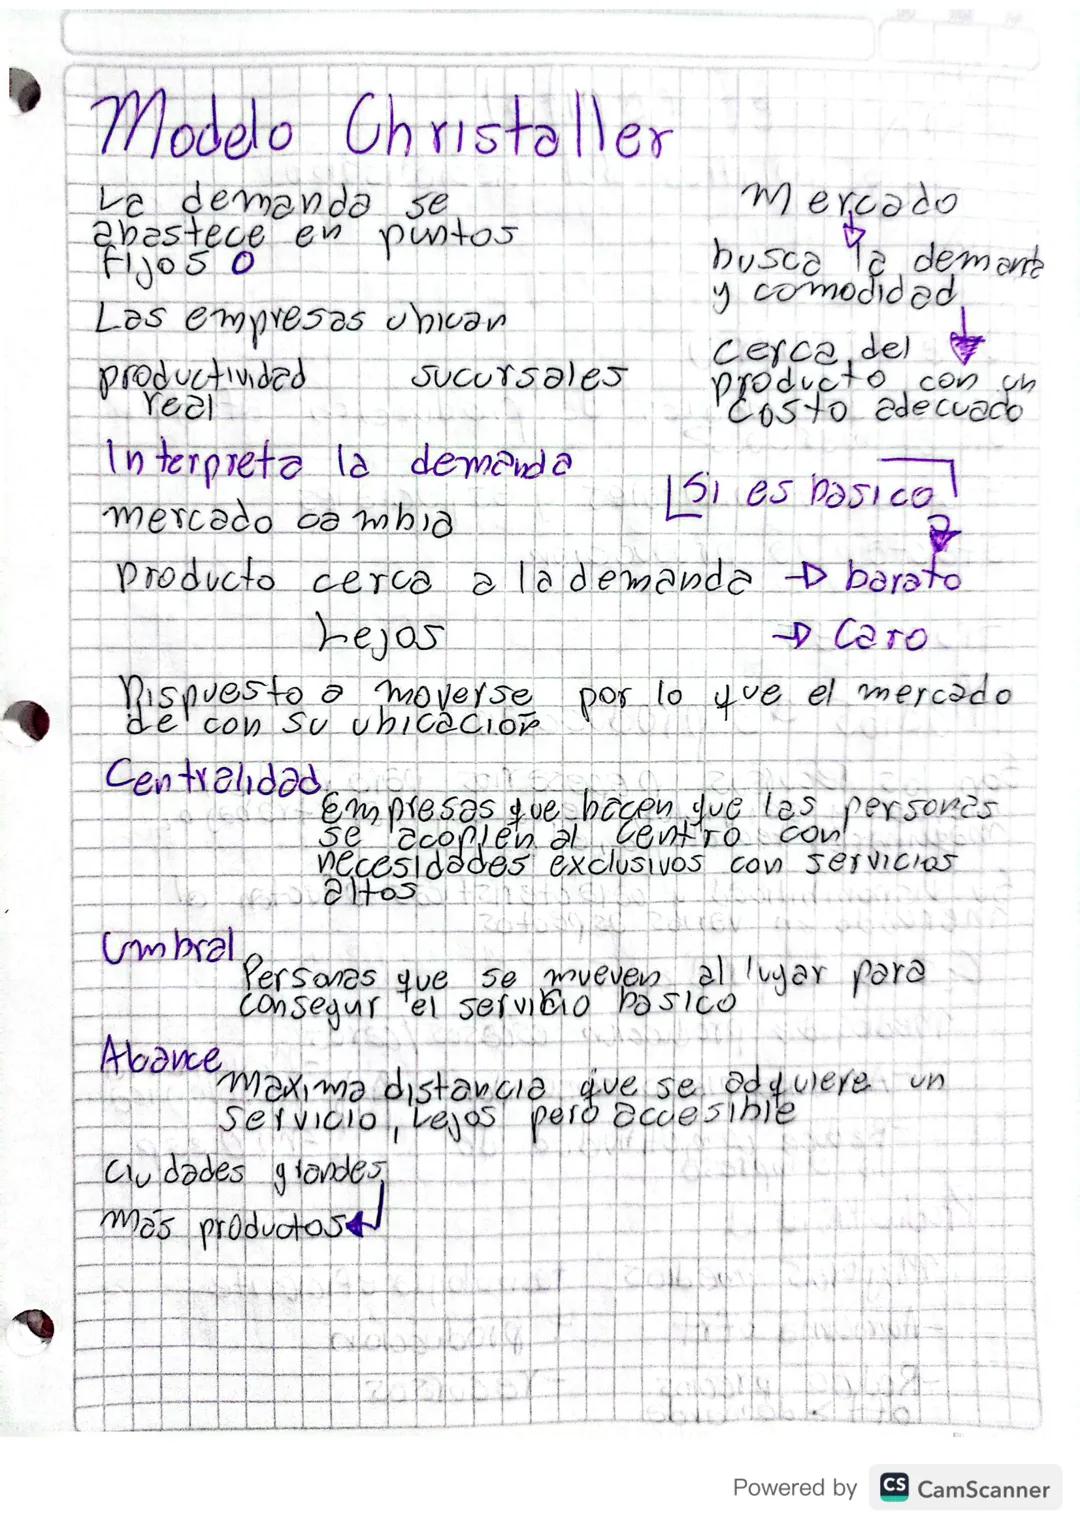 Modelo Christaller
La demanda se
abastece en puntos
fijos o
Las empresas ubican
productividad sucursales
real
Mercado
busca la demanda
y comodidad
cerca del
producto con un
costo adecuado
Interpreta la demanda
mercado cambia
Si es basico
producto cerca a la demanda → barato
Lejos → Caro
Dispuesto a moverse por lo que el mercado
de con su ubicación
Centralidad
Empresas que hacen que las personas
se acoplen al centro con
necesidades exclusivos con servicios
altos
Umbral
Personas que se mueven al lugar para
consegur el servicio basico
Abance
maxima distancia que se adquiere un
servicio, Lejos pero accesible
Ciudades grandes
mas productos
Powered by CS CamScanner